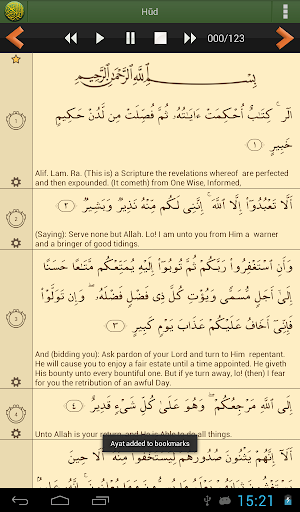 Hūd
000/123
بِسْمِ ٱللَّهِ ٱلرَّحْمَٰنِ ٱلرَّحِيمِ
الٓر ۚ كِتَٰبٌ أُحْكِمَتْ ءَايَٰتُهُۥ ثُمَّ فُصِّلَتْ مِن لَّدُنْ حَكِيمٍ
خَبِيرٍ ١
1
Alif. Lam. Ra. (This is) a Scripture the revelations whereof are perfected
and then expounded. (It cometh) from One Wise, Informed,
أَلَّا تَعْبُدُوٓا۟ إِلَّا ٱللَّهَ ۚ إِنَّنِى لَكُم مِّنْهُ نَذِيرٌ وَبَشِيرٌ ٢
2
(Saying): Serve none but Allah. Lo! I am unto you from Him a warner
and a bringer of good tidings.
وَأَنِ ٱسْتَغْفِرُوا۟ رَبَّكُمْ ثُمَّ تُوبُوٓا۟ إِلَيْهِ يُمَتِّعْكُم مَّتَٰعًا حَسَنًا
إِلَىٰٓ أَجَلٍ مُّسَمًّى وَيُؤْتِ كُلَّ ذِى فَضْلٍ فَضْلَهُۥ ۖ وَإِن تَوَلَّوْا۟
فَإِنِّىٓ أَخَافُ عَلَيْكُمْ عَذَابَ يَوْمٍ كَبِيرٍ ٣
3
And (bidding you): Ask pardon of your Lord and turn to Him repentant.
He will cause you to enjoy a fair estate until a time appointed. He giveth
His bounty unto every bountiful one. But if ye turn away, lo! (then) I fear
for you the retribution of an awful Day.
إِلَى ٱللَّهِ مَرْجِعُكُمْ ۖ وَهُوَ عَلَىٰ كُلِّ شَىْءٍ قَدِيرٌ ٤
4
Unto Allah is your return, and He is Able to do all things.
Ayat added to bookmarks
أَلَآ إِنَّهُمْ يَثْنُونَ صُدُورَهُمْ لِيَسْتَخْفُوا۟ مِنْهُ ۚ أَلَا حِينَ
15:21